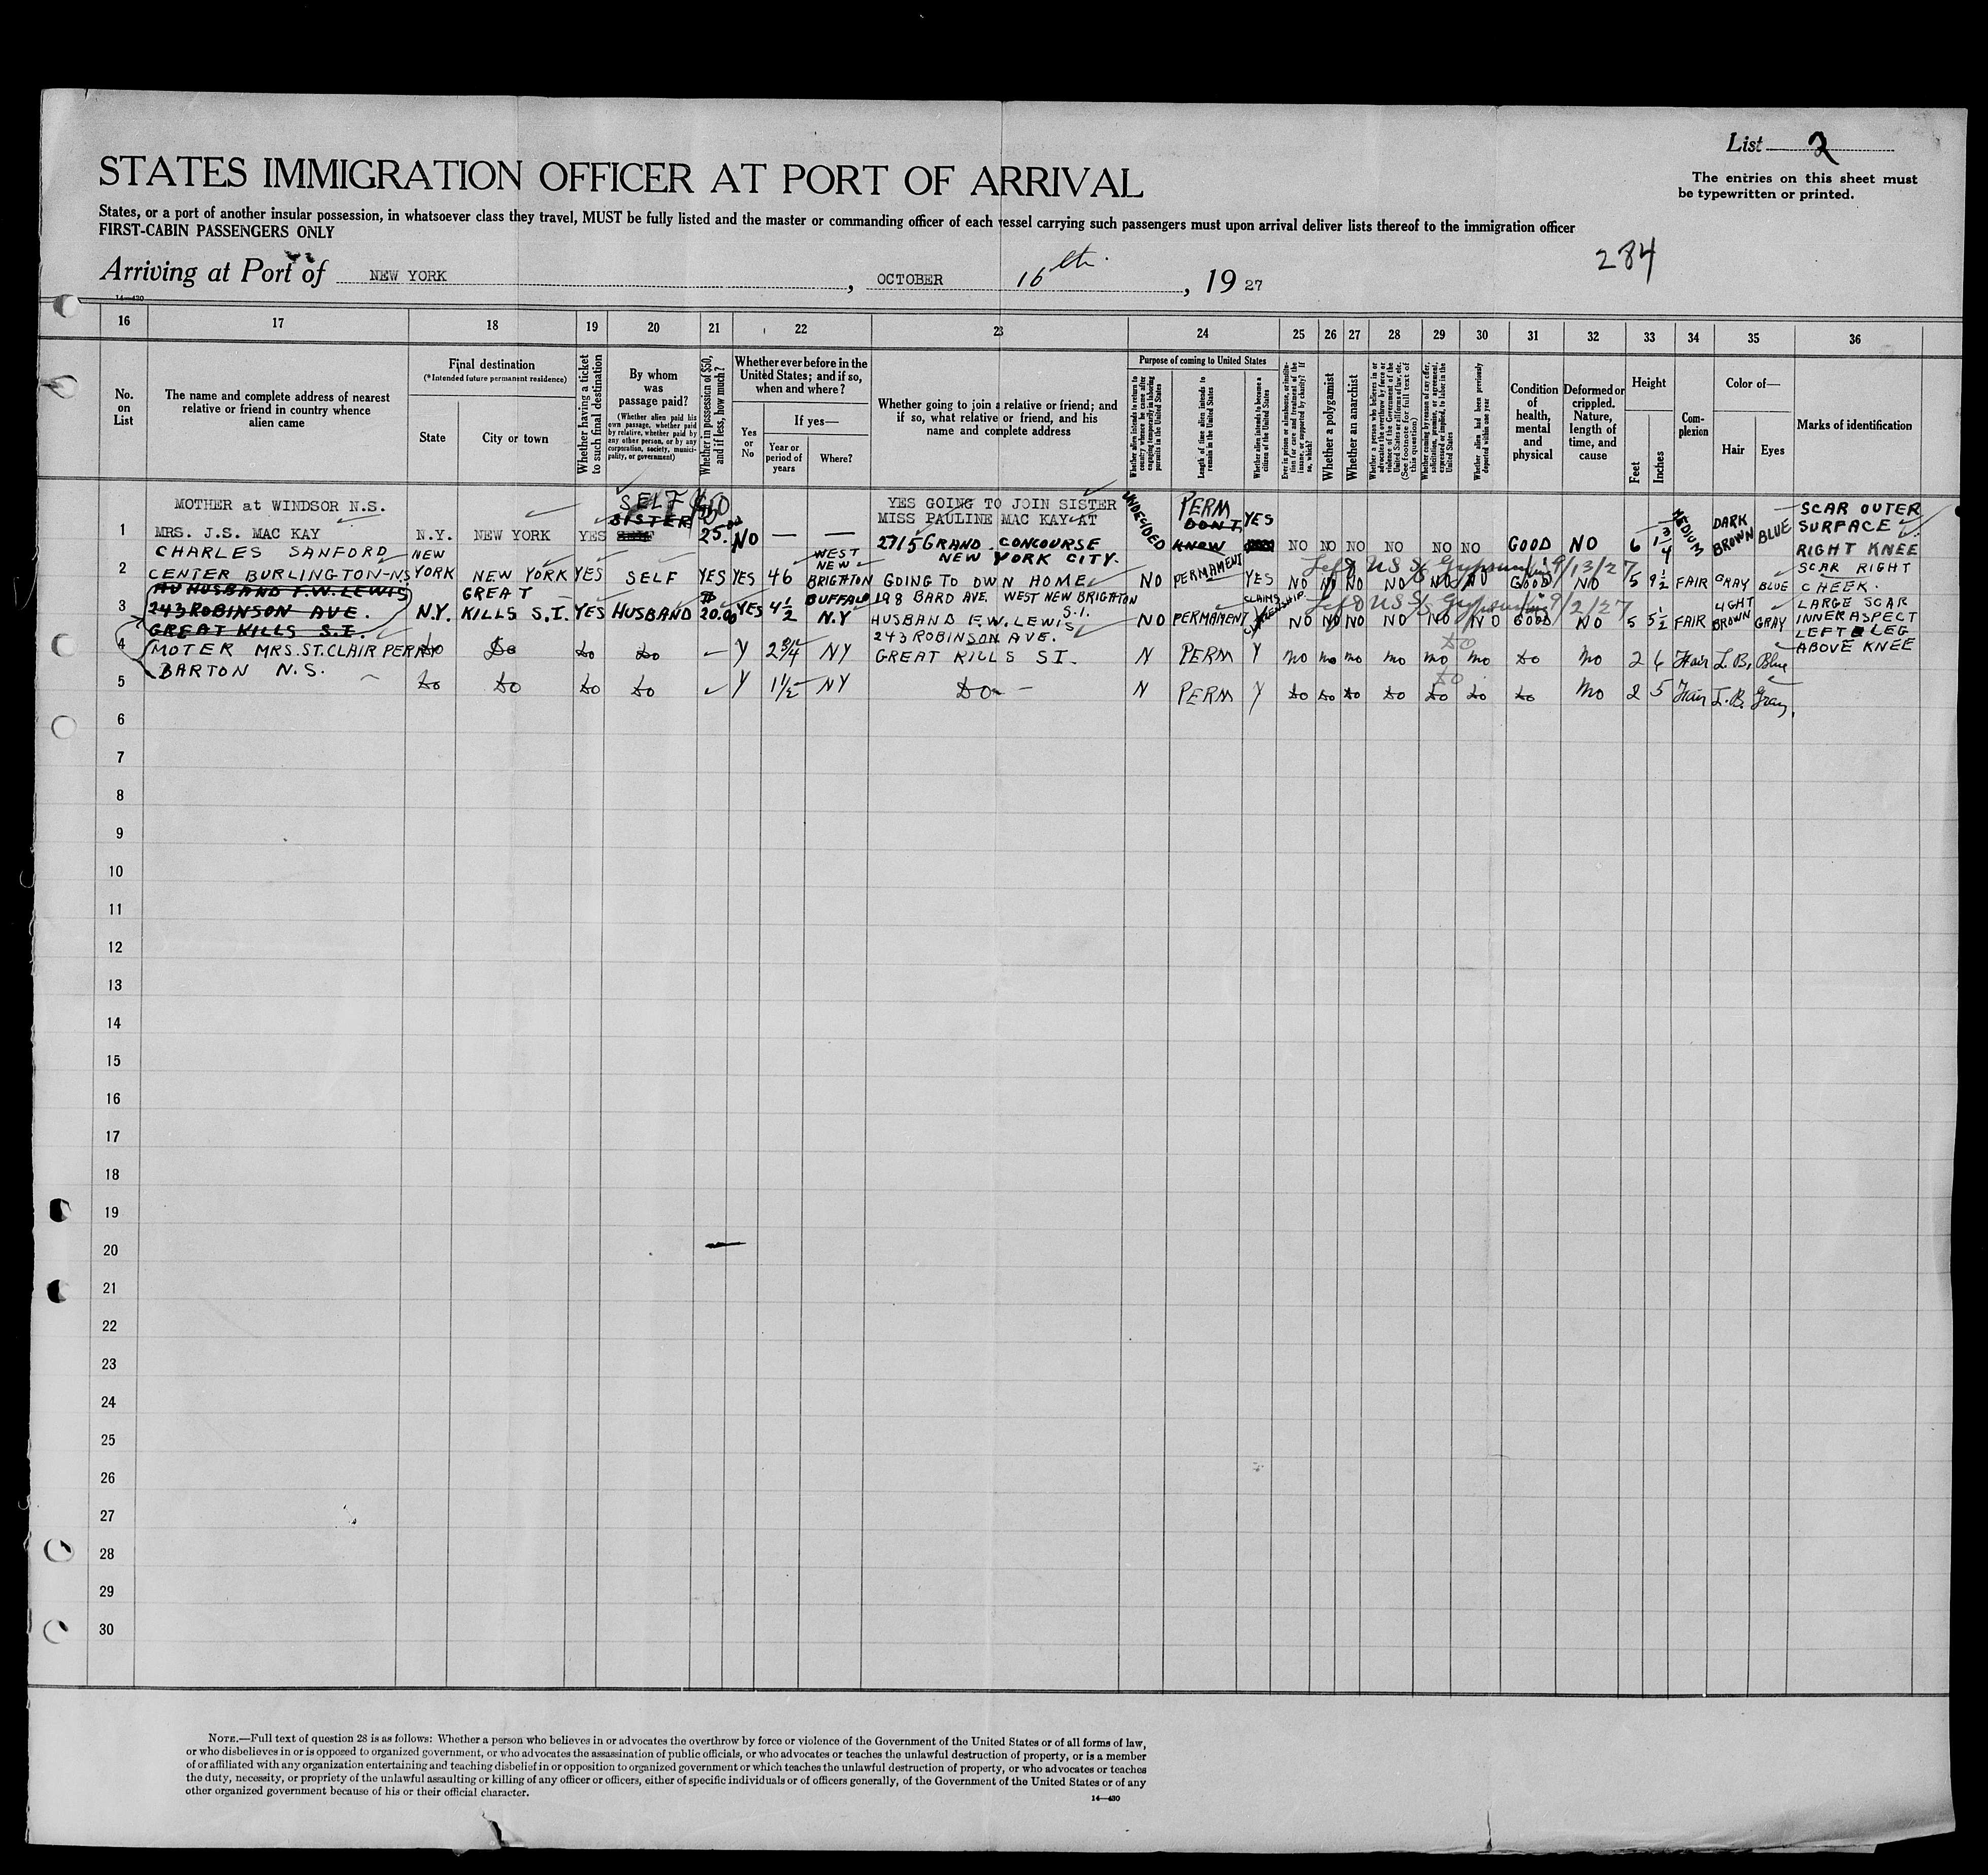 List 2
The entries on this sheet must
be typewritten or printed.
STATES IMMIGRATION OFFICER AT PORT OF ARRIVAL
States, or a port of another insular possession, in whatsoever class they travel, MUST be fully listed and the master or commanding officer of each vessel carrying such passengers must upon arrival deliver lists thereof to the immigration officer
FIRST-CABIN PASSENGERS ONLY
284
Arriving at Port of NEW YORK, OCTOBER 16th, 1927
14—430
16 17 18 19 20 21 22 23 24 25 26 27 28 29 30 31 32 33 34 35 36
No. on List
The name and complete address of nearest relative or friend in country whence alien came
Final destination
(*Intended future permanent residence)
State
City or town
Whether having a ticket to such final destination
By whom was passage paid?
(Whether alien paid his own passage, whether paid by relative, whether paid by any other person, or by any corporation, society, municipality, or government)
Whether in possession of $50, and if less, how much?
Whether ever before in the United States; and if so, when and where?
Yes or No
If yes—
Year or period of years
Where?
Whether going to join a relative or friend; and if so, what relative or friend, and his name and complete address
Purpose of coming to United States
Whether alien intends to return to country whence he came after engaging temporarily in laboring pursuits in the United States
Length of time alien intends to remain in the United States
Whether alien intends to become a citizen of the United States
Ever in prison or almshouse, or institution for care and treatment of the insane, or supported by charity? If so, which?
Whether a polygamist
Whether an anarchist
Whether a person who believes in or advocates the overthrow by force or violence of the Government of the United States or all forms of law, etc. (See footnote for full text of this question)
Whether coming by reason of any offer, solicitation, promise, or agreement, expressed or implied, to labor in the United States
Whether alien had been previously deported within one year
Condition of health, mental and physical
Deformed or crippled. Nature, length of time, and cause
Height
Feet
Inches
Complexion
Color of—
Hair
Eyes
Marks of identification
1 MOTHER at WINDSOR N.S. MRS. J.S. MAC KAY N.Y. NEW YORK YES SELF SISTER $50 25.00 NO — — YES GOING TO JOIN SISTER MISS PAULINE MAC KAY AT 2715 GRAND CONCOURSE NEW YORK CITY. UNDECIDED PERM DONT KNOW YES NO NO NO NO NO NO GOOD NO 6 1 3/4 MEDIUM DARK BROWN BLUE SCAR OUTER SURFACE RIGHT KNEE
2 CHARLES SANFORD CENTER BURLINGTON-NS NEW YORK NEW YORK YES SELF YES YES 46 WEST NEW BRIGHTON GOING TO OWN HOME 198 BARD AVE WEST NEW BRIGHTON S.I. NO PERMAMENT YES NO NO NO NO NO NO GOOD NO 5 9 1/2 FAIR GRAY BLUE SCAR RIGHT CHEEK.
Left US S/S Gypsum 9/13/27
3 HUSBAND F.W. LEWIS 243 ROBINSON AVE. GREAT KILLS S.I. N.Y. GREAT KILLS S.I. YES HUSBAND $20.00 YES 4 1/2 BUFFALO N.Y HUSBAND F.W. LEWIS 243 ROBINSON AVE. GREAT KILLS S I. NO PERMAMENT CLAIMS CITIZENSHIP NO NO NO NO NO NO GOOD NO 5 5 1/2 FAIR LIGHT BROWN GRAY LARGE SCAR INNER ASPECT LEFT LEG ABOVE KNEE
Left US S/S Gypsum 9/2/27
4 MOTER MRS. ST. CLAIR PERRY BARTON N.S. Do Do Do Do — Y 2 3/4 NY N PERM Y No No No No No No Do No 2 6 Fair L. B. Blue
Do
5 Do Do Do Do Y 1 1/2 NY Do — N PERM Y Do Do Do Do Do Do Do No 2 5 Fair L. B. Gray.
Do
6
7
8
9
10
11
12
13
14
15
16
17
18
19
20
21
22
23
24
25
26
27
28
29
30
NOTE.—Full text of question 28 is as follows: Whether a person who believes in or advocates the overthrow by force or violence of the Government of the United States or of all forms of law,
or who disbelieves in or is opposed to organized government, or who advocates the assassination of public officials, or who advocates or teaches the unlawful destruction of property, or is a member
of or affiliated with any organization entertaining and teaching disbelief in or opposition to organized government or which teaches the unlawful destruction of property, or who advocates or teaches
the duty, necessity, or propriety of the unlawful assaulting or killing of any officer or officers, either of specific individuals or of officers generally, of the Government of the United States or of any
other organized government because of his or their official character.
14—430